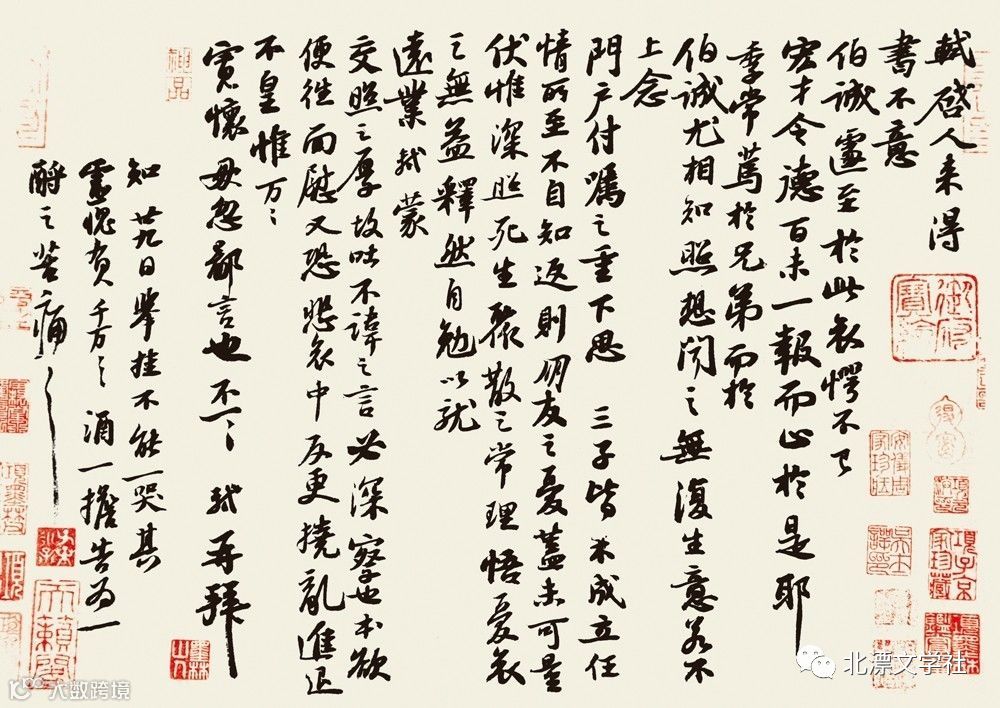 軾啓人来得
書不意
伯誠遽至於此哀愕不已
宏才令德百未一報而止於是耶
季常篤於兄弟而於
伯誠尤相知照想聞之無復生意若不
上念
門户付囑之重下思三子皆未成立任
情所至不自知返則朋友之憂蓋未可量
伏惟深照死生聚散之常理悟憂哀
之無益釋然自勉以就
遠業軾蒙
交照之厚故吐不諱之言必深察也本欲
便往面慰又恐悲哀中反更撓亂進退
不皇惟万〻
寛懷毋忽鄙言也不一〻軾再拜
知廿九日舉挂不能一哭其
靈愧負千万〻酒一擔告為一
酹之苦痛〻
項子京
家珍藏
北漂文学社
大数跨境